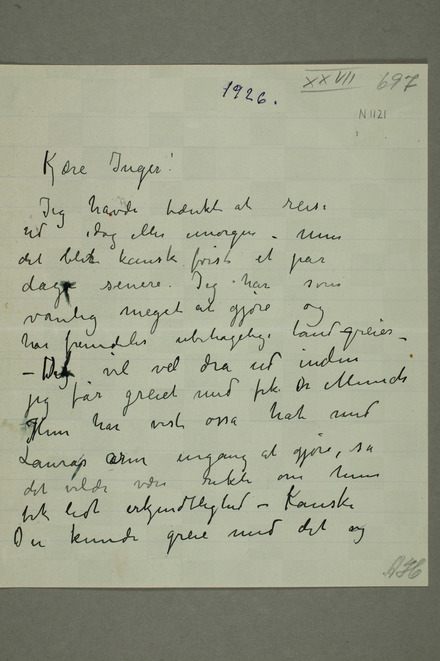 1926.
XXVII 697
N 1121
Kjære Inger!
Jeg havde tænkt at reise
ud idag eller imorgen – men
det blir kanske først et par
dage senere. Jeg har som
vanlig meget at gjøre og
har fremdeles ubehagelige tand-greier –
– Du vil vel dra ud inden
jeg får greiet med frk. Dr Munch
Hun har vist ossa hat med
Lauras arm engang at gjøre, så
det vilde være rikti om hun
fik lidt erkjendtlighed – Kanske
Du kunde greie med det og